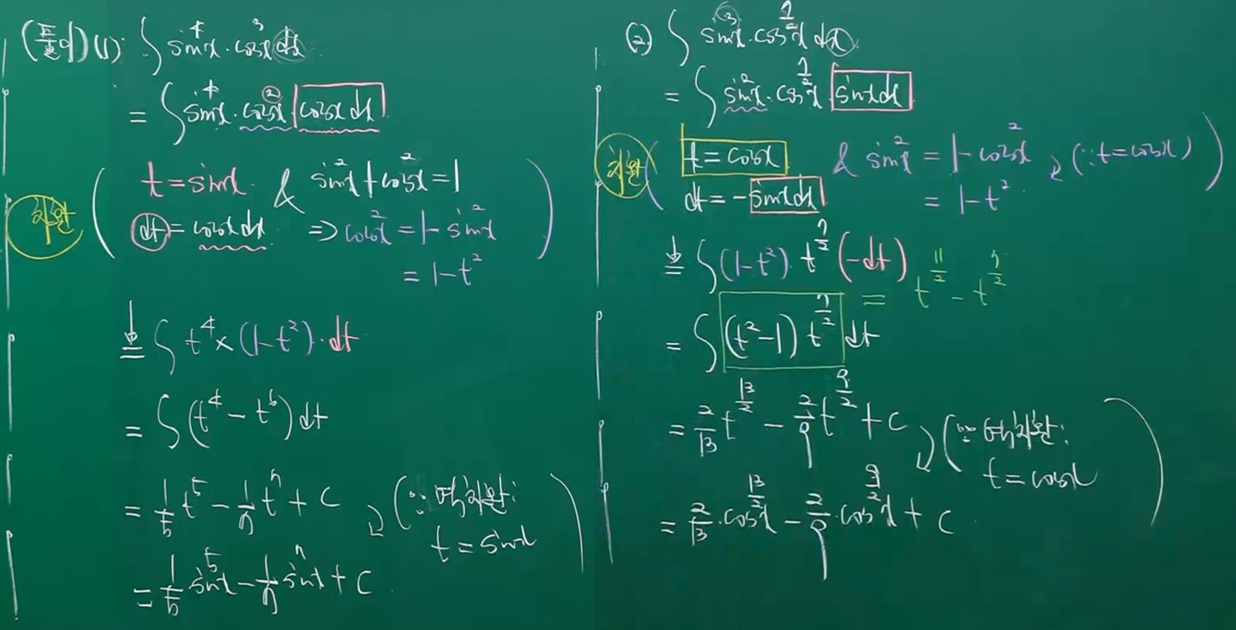 (풀이) (1) ∫ sin⁴x · cos³x dx
= ∫ sin⁴x · cos²x · cosx dx
치환
t = sinx & sin²x + cos²x = 1
dt = cosx dx ⇒ cos²x = 1 - sin²x
= 1 - t²
= ∫ t⁴ × (1 - t²) · dt
= ∫ (t⁴ - t⁶) dt
= 1/5 t⁵ - 1/7 t⁷ + C (∵ 역치환:
t = sinx
= 1/5 sin⁵x - 1/7 sin⁷x + C
(2) ∫ sin³x · cos^(7/2)x dx
= ∫ sin²x · cos^(7/2)x · sinx dx
치환
t = cosx & sin²x = 1 - cos²x (∵ t = cosx)
dt = -sinx dx = 1 - t²
= ∫ (1 - t²) · t^(7/2) (-dt)
= t^(11/2) - t^(7/2)
= ∫ (t² - 1) t^(7/2) dt
= 2/13 t^(13/2) - 2/9 t^(9/2) + C (∵ 역치환:
t = cosx
= 2/13 · cos^(13/2)x - 2/9 · cos^(9/2)x + C